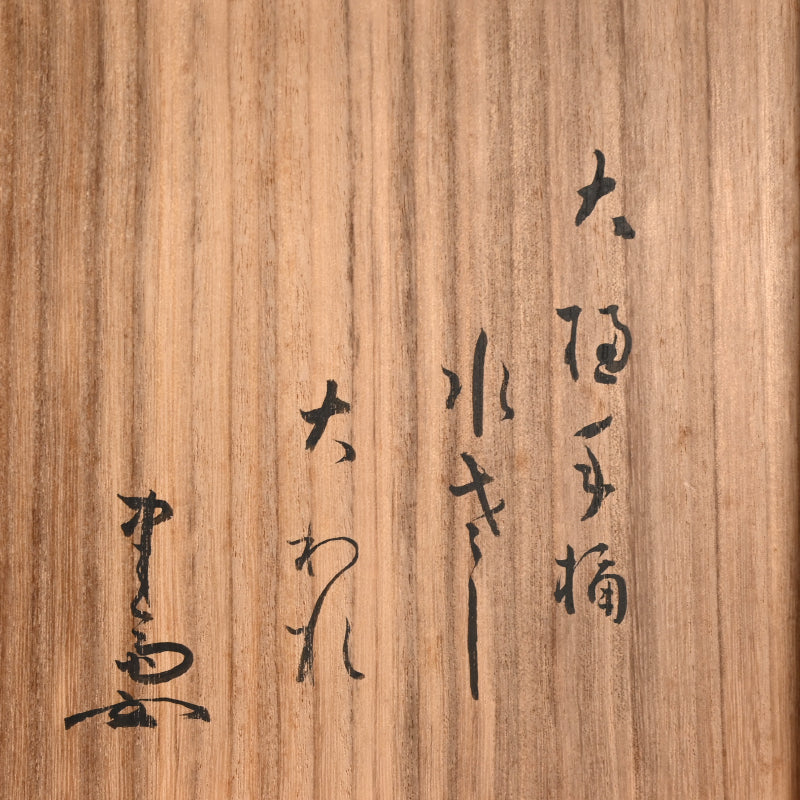 大樋手桶
水さし
大われ